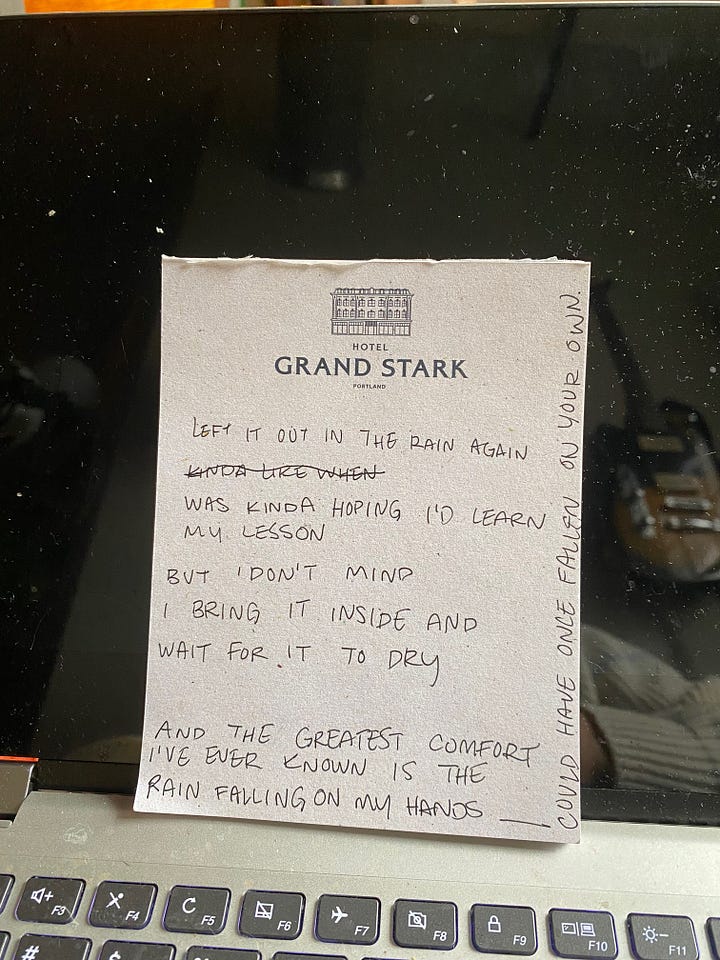 HOTEL
GRAND STARK
PORTLAND
LEFT IT OUT IN THE RAIN AGAIN
KINDA LIKE WHEN
WAS KINDA HOPING I'D LEARN
MY LESSON
BUT I DON'T MIND
I BRING IT INSIDE AND
WAIT FOR IT TO DRY
AND THE GREATEST COMFORT
I'VE EVER KNOWN IS THE
RAIN FALLING ON MY HANDS __
COULD HAVE ONCE FALLEN ON YOUR OWN.
F3
F4
F5
F6
F7
F8
F9
F10
F11
#
$